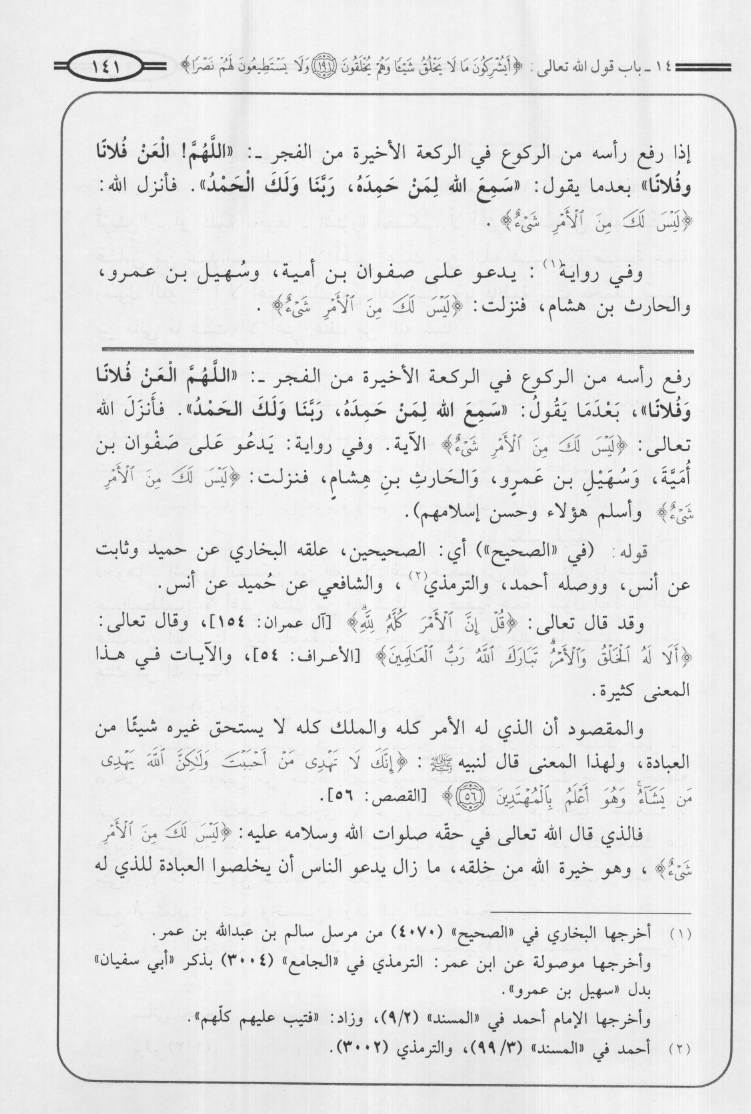 ١٤ ـ باب قول الله تعالى: ﴿أَيُشْرِكُونَ مَا لَا يَخْلُقُ شَيْئًا وَهُمْ يُخْلَقُونَ ﴿١٩١﴾ وَلَا يَسْتَطِيعُونَ لَهُمْ نَصْرًا﴾ ١٤١
إذا رفع رأسه من الركوع في الركعة الأخيرة من الفجر ـ: «اللَّهُمَّ! الْعَنْ فُلَانًا
وفُلَانًا» بعدما يقول: «سَمِعَ الله لِمَنْ حَمِدَهُ، رَبَّنَا وَلَكَ الْحَمْدُ». فأنزل الله:
﴿لَيْسَ لَكَ مِنَ ٱلْأَمْرِ شَىْءٌ﴾ .
وفي رواية(١) : يدعو على صفوان بن أمية، وسُهيل بن عمرو،
والحارث بن هشام، فنزلت: ﴿لَيْسَ لَكَ مِنَ ٱلْأَمْرِ شَىْءٌ﴾ .
رفع رأسه من الركوع في الركعة الأخيرة من الفجر ـ: «اللَّهُمَّ الْعَنْ فُلَانًا
وَفُلَانًا»، بَعْدَمَا يَقُولُ: «سَمِعَ الله لِمَنْ حَمِدَهُ، رَبَّنَا وَلَكَ الحَمْدُ». فأَنزَلَ الله
تعالى: ﴿لَيْسَ لَكَ مِنَ ٱلْأَمْرِ شَىْءٌ﴾ الآية. وفي رواية: يَدعُو عَلى صَفْوان بن
أُمَيَّةَ، وَسُهَيْلِ بن عَمرٍو، وَالحَارثِ بنِ هِشامٍ، فنزلت: ﴿لَيْسَ لَكَ مِنَ ٱلْأَمْرِ
شَىْءٌ﴾ وأسلم هؤلاء وحسن إسلامهم).
قوله: (في «الصحيح») أي: الصحيحين، علقه البخاري عن حميد وثابت
عن أنس، ووصله أحمد، والترمذي(٢) ، والشافعي عن حُميد عن أنس.
وقد قال تعالى: ﴿قُلْ إِنَّ ٱلْأَمْرَ كُلَّهُۥ لِلَّهِۗ﴾ [آل عمران: ١٥٤]، وقال تعالى:
﴿أَلَا لَهُ ٱلْخَلْقُ وَٱلْأَمْرُۗ تَبَارَكَ ٱللَّهُ رَبُّ ٱلْعَـٰلَمِينَ﴾ [الأعراف: ٥٤]، والآيات في هذا
المعنى كثيرة.
والمقصود أن الذي له الأمر كله والملك كله لا يستحق غيره شيئًا من
العبادة، ولهذا المعنى قال لنبيه ﷺ : ﴿إِنَّكَ لَا تَهْدِى مَنْ أَحْبَبْتَ وَلَـٰكِنَّ ٱللَّهَ يَهْدِى
مَن يَشَآءُۚ وَهُوَ أَعْلَمُ بِٱلْمُهْتَدِينَ ﴿٥٦﴾﴾ [القصص: ٥٦].
فالذي قال الله تعالى في حقّه صلوات الله وسلامه عليه: ﴿لَيْسَ لَكَ مِنَ ٱلْأَمْرِ
شَىْءٌ﴾ ، وهو خيرة الله من خلقه، ما زال يدعو الناس أن يخلصوا العبادة للذي له
(١) أخرجها البخاري في «الصحيح» (٤٠٧٠) من مرسل سالم بن عبدالله بن عمر.
وأخرجها موصولة عن ابن عمر: الترمذي في «الجامع» (٣٠٠٤) بذكر «أبي سفيان»
بدل «سهيل بن عمرو».
وأخرجها الإمام أحمد في «المسند» (٩/٢)، وزاد: «فتيب عليهم كلّهم».
(٢) أحمد في «المسند» (٩٩/٣)، والترمذي (٣٠٠٢).